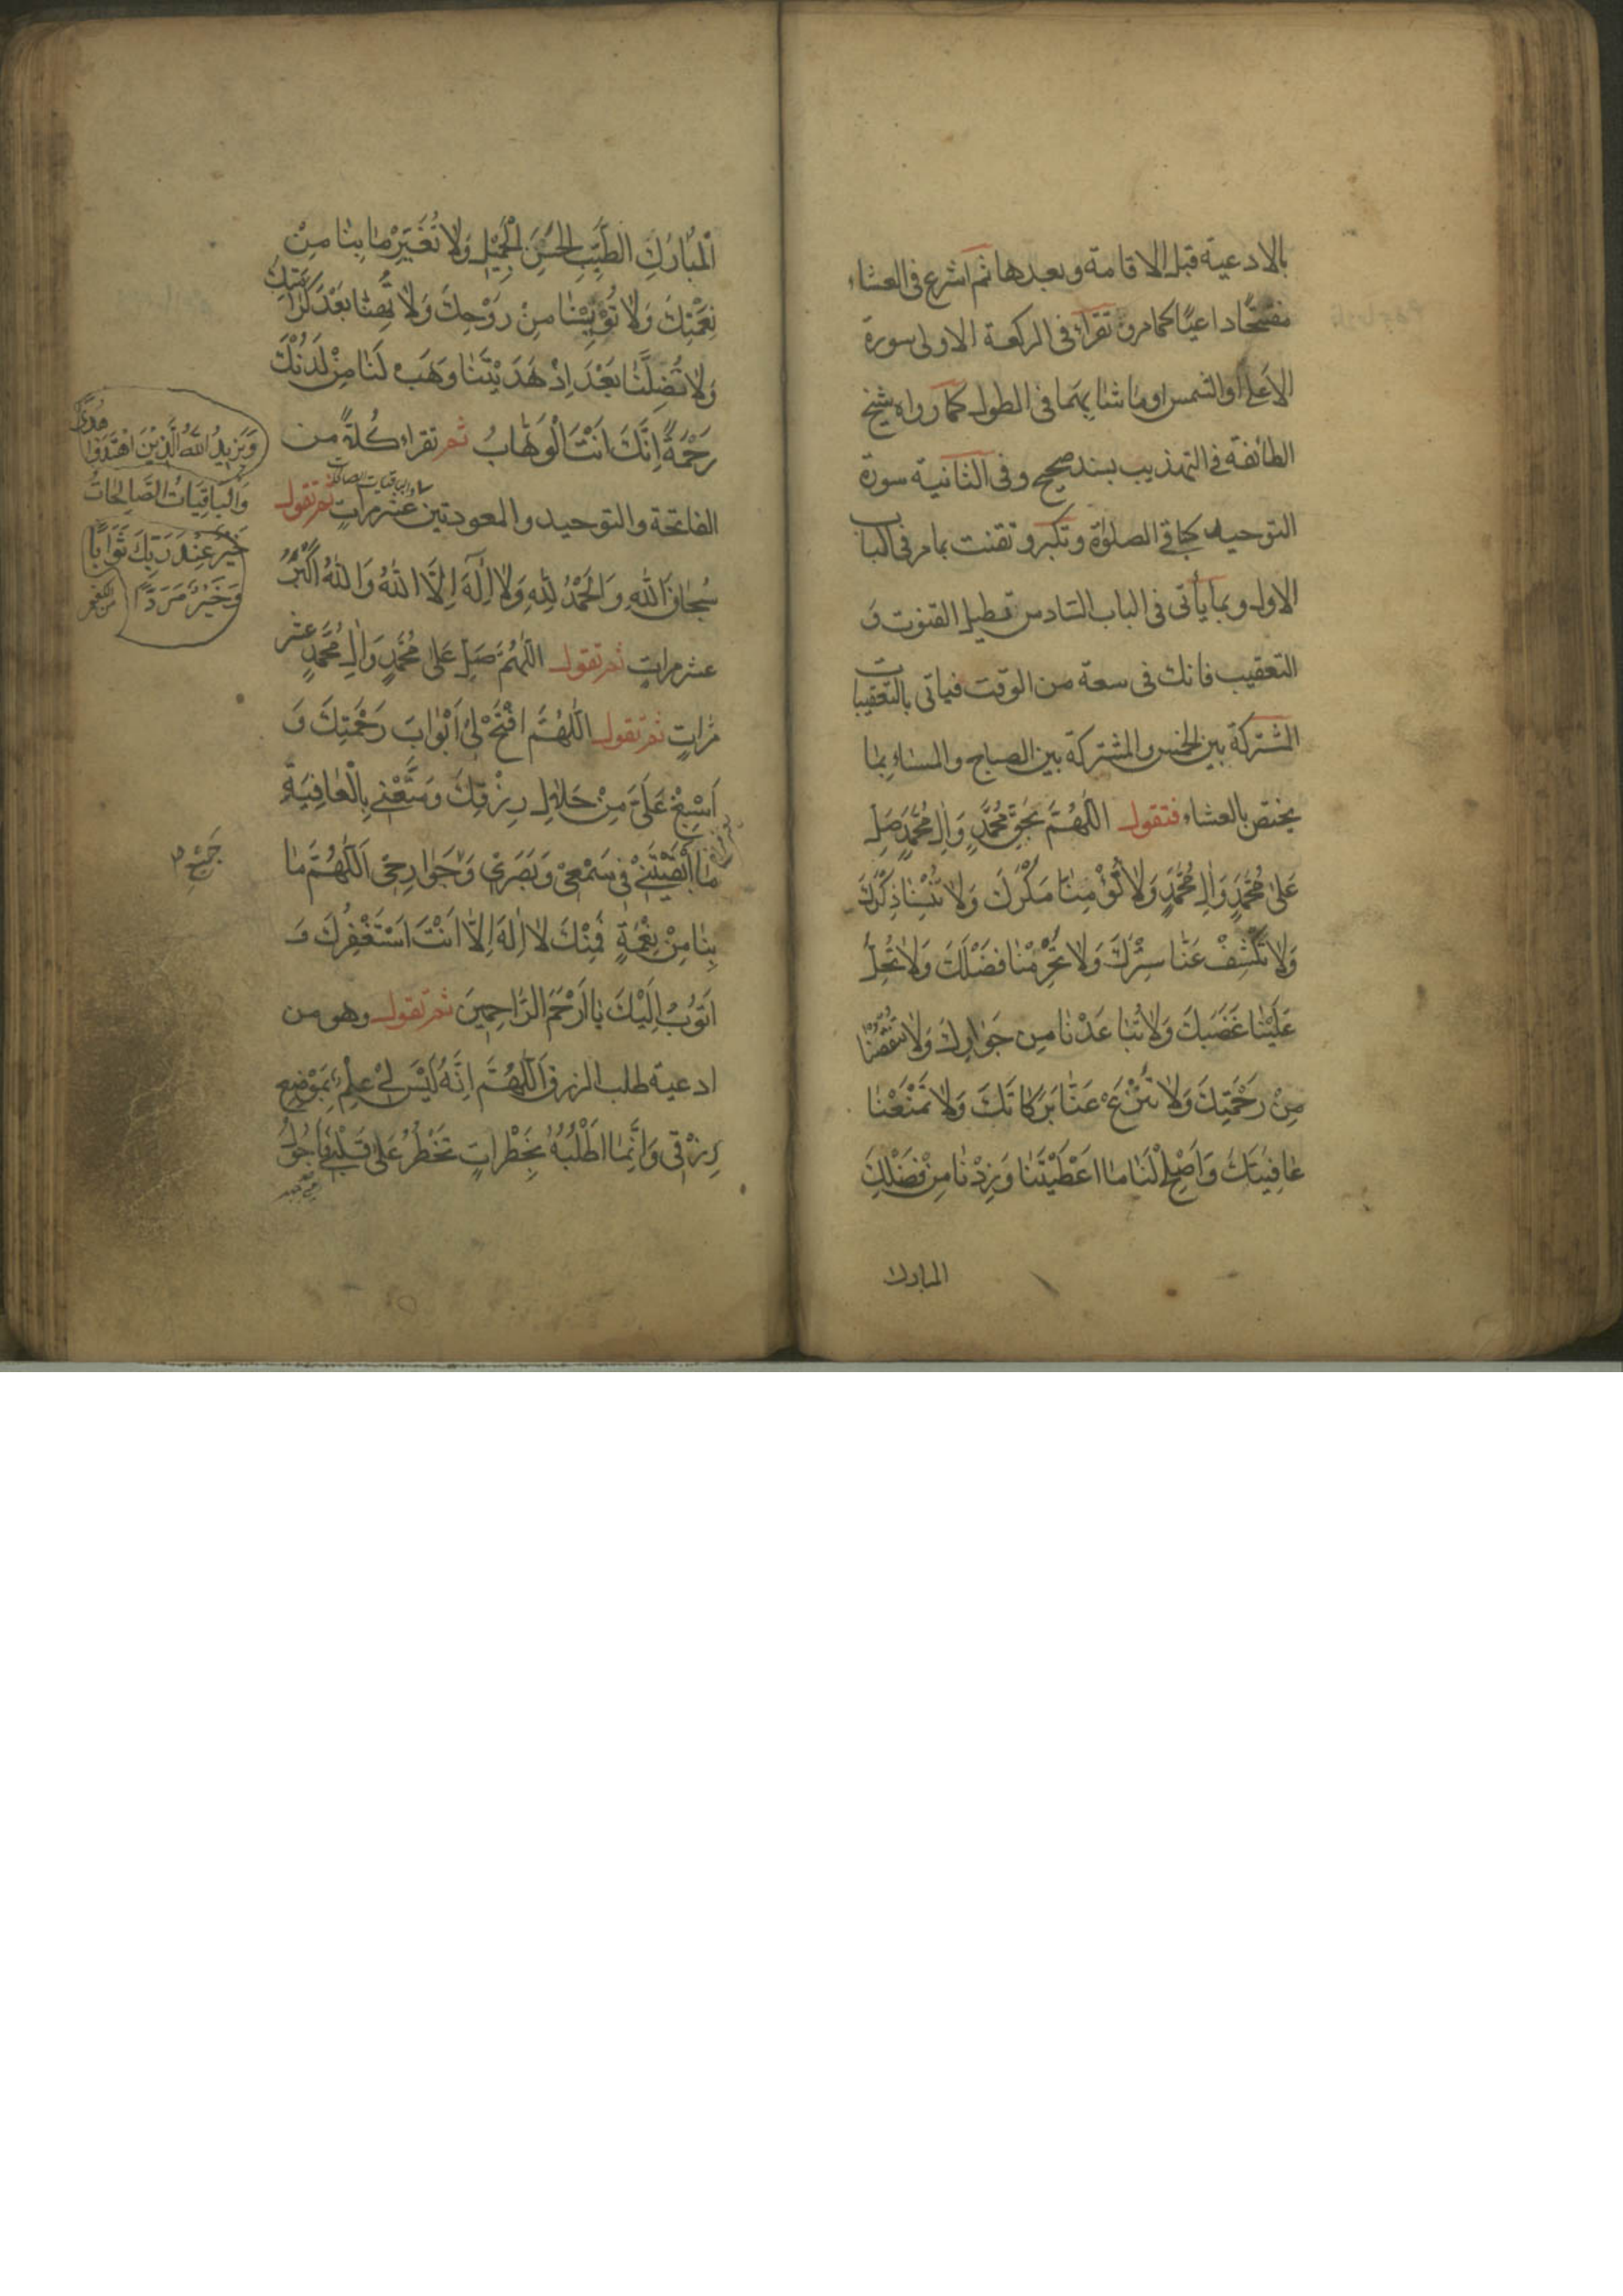 بالادعية قبل الاقامة وبعدها ثم اشرع فى العشاء
مفتتحًا داعيًا كما مر و تقراء فى الركعة الاولى سورة
الاعلى او الشمس او ما شابههما فى الطول كما رواه شيخ
الطائفة فى التهذيب بسند صحيح وفى الثانية سورة
التوحيد كباقى الصلوة وتكبر و تقنت بما مر فى الباب
الاول وبما يأتى فى الباب السادس وتطيل القنوت وَ
التعقيب فانك فى سعة من الوقت فياتى بالتعقيبات
المشتركة بين الخمس والمشتركة بين الصباح والمساء بما
يختص بالعشاء فتقول اللّٰهُمَّ بِحَقِّ مُحَمَّدٍ وَاٰلِ مُحَمَّدٍ صَلِّ
عَلىٰ مُحَمَّدٍ وَاٰلِ مُحَمَّدٍ وَلاٰ تُؤْمِنّٰا مَكْرَكَ وَلاٰ تُنْسِنٰا ذِكْرَكَ
وَلاٰ تَكْشِفْ عَنّٰا سِتْرَكَ وَلاٰ تَحْرِمْنٰا فَضْلَكَ وَلاٰ تُحِلَّ
عَلَيْنٰا غَضَبَكَ وَلاٰ تُبٰاعِدْنٰا مِن جَوٰارِكَ وَلاٰ تَنْقُصْنٰا
مِنْ رَحْمَتِكَ وَلاٰ تَنْزِعْ عَنّٰا بَرَكٰاتَكَ وَلاٰ تَمْنَعْنٰا
عٰافِيَتَكَ وَاَصْلِحْ لَنٰا مٰا اَعْطَيْتَنٰا وَزِدْنٰا مِنْ فَضْلِكَ
المبارك
الْمُبٰارَكِ الطَّيِّبِ الْحَسَنِ الْجَمِيلِ وَلاٰ تُغَيِّرْ مٰا بِنٰا مِنْ
نِعْمَتِكَ وَلاٰ تُؤْيِسْنٰا مِنْ رَوْحِكَ وَلاٰ تُهِنّٰا بَعْدَ كَرٰامَتِكَ
وَلاٰ تُضِلَّنٰا بَعْدَ اِذْ هَدَيْتَنٰا وَهَبْ لَنٰا مِنْ لَدُنْكَ
رَحْمَةً اِنَّكَ اَنْتَ الْوَهّٰابُ ثم تقراء كُلَّا من
الفاتحة والتوحيد والمعوذتين عشر مراتٍ ثم تقول
والباقيات الصالحات
سُبْحٰانَ اللّٰهِ وَالْحَمْدُ لِلّٰهِ وَلاٰ اِلٰهَ اِلَّا اللّٰهُ وَاللّٰهُ اَكْبَرُ
عشر مراتٍ ثم تقول اللّٰهُمَّ صَلِّ عَلىٰ مُحَمَّدٍ وَاٰلِ مُحَمَّدٍ عشر
مَرّاتٍ ثم تقول اللّٰهُمَّ افْتَحْ لِى اَبْوٰابَ رَحْمَتِكَ وَ
اَسْبِغْ عَلَىَّ مِنْ حَلاٰلِ رِزْقِكَ وَمَتِّعْنِى بِالْعٰافِيَةِ
مٰا اَبْقَيْتَنِى فِى سَمْعِى وَبَصَرِى وَجَوٰارِحِى اَللّٰهُمَّ مٰا
بِنٰا مِنْ نِعْمَةٍ فَمِنْكَ لاٰ اِلٰهَ اِلاّٰ اَنْتَ اَسْتَغْفِرُكَ وَ
اَتُوبُ اِلَيْكَ يٰا اَرْحَمَ الرّٰاحِمِينَ ثم تقول وهو من
ادعية طلب الرزق اَللّٰهُمَّ اِنَّهُ لَيْسَ لِى عِلْمٌ بِمَوْضِعِ
رِزْقِى وَاِنَّمٰا اَطْلُبُهُ بِخَطَرٰاتٍ تَخْطُرُ عَلىٰ قَلْبِى فَاَجُولُ
وَيَزِيدُ اللّٰهُ الَّذِينَ اهْتَدَوْا هُدًى
وَالْبَاقِيٰاتُ الصّٰالِحٰاتُ
خَيْرٌ عِنْدَ رَبِّكَ ثَوٰابًا
وَخَيْرٌ مَرَدًّا
جَمِيعِ